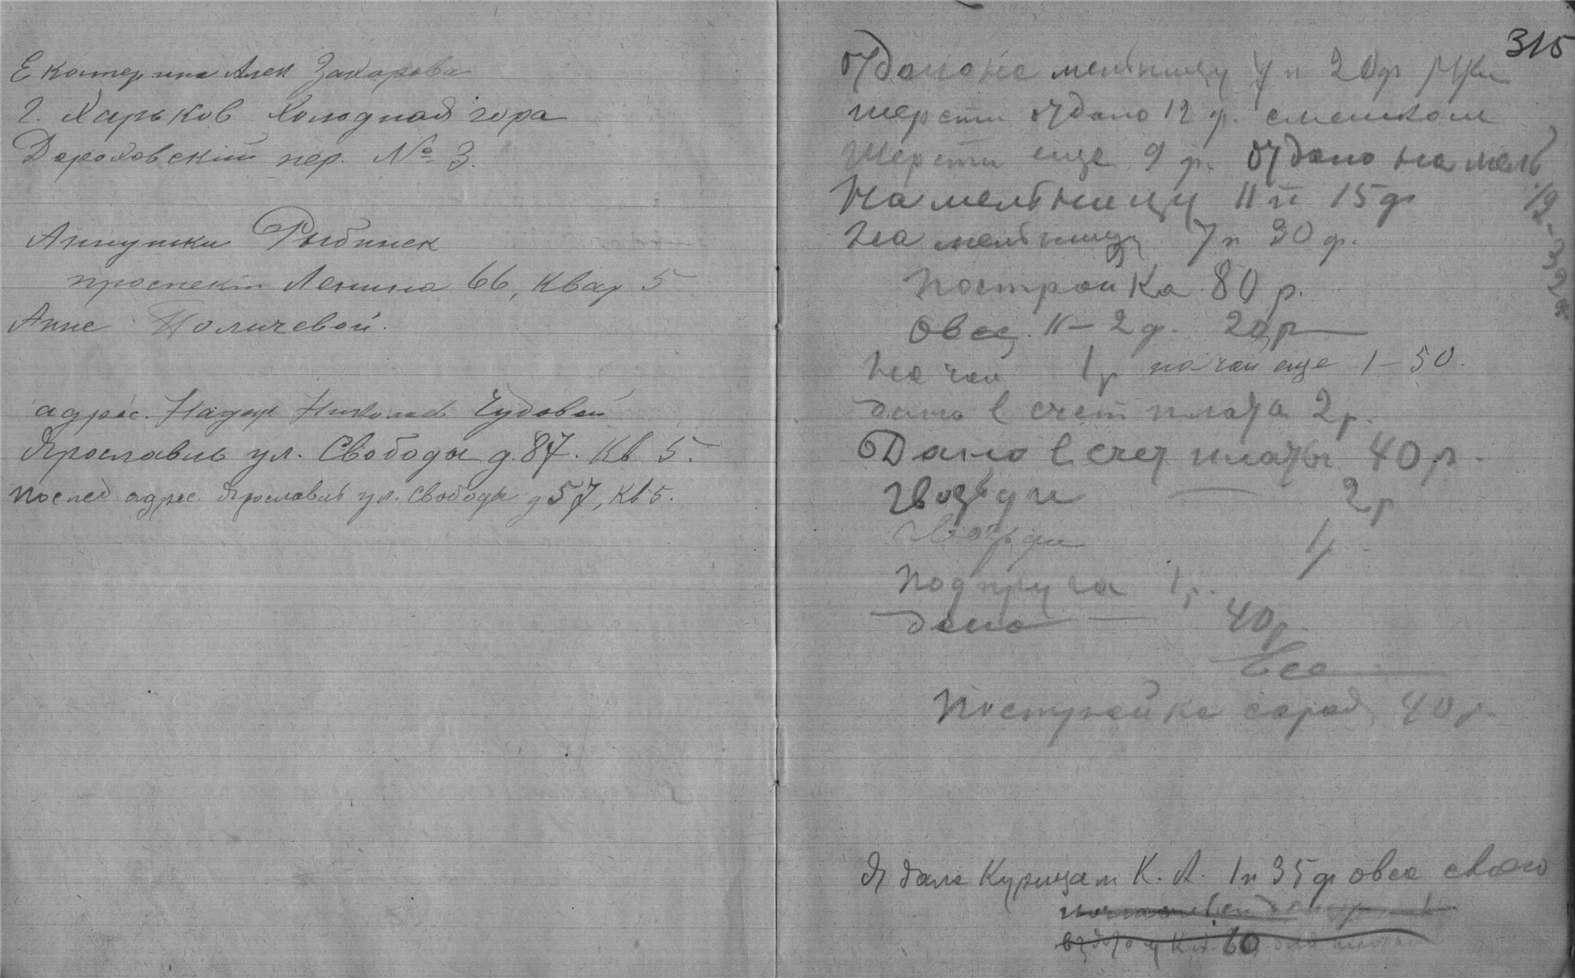 Екатерина Алек Захарова
г. Харьков Холодная гора
Дороховскій пер. № 3.
Аннушки Рыбинск
проспект Ленина 66, Квар 5
Анне Поличевой.
адрес. Надеж Николаев Чудовой
Ярославль ул. Свободы д. 87. Кв 5.
послед адрес Ярославль ул. Свободы д 57, Кв 5.
315
Отдано на мельницу 4 п 20 ф муки
шерсти отдано 12 ф. с мешком
Шерсти еще 9 ф. отдано на мель
На мельницу 11 п 15 ф
На мельницу 7 п 30 ф.
Постройка 80 р.
Овес. 11 – 2 ф. 20 р
На чай 1 р на чай еще 1 – 50.
дано в счет плата 2 р.
Дано в счет платы 40 р.
Гвозди 2 р
Гвозди 1 р
Подпруга 1 р.
дано — 40 р.
Все
Постройка сарая 40 р
Я дала Курицам К. А. 1 п 35 ф овса своего
К. А. 60